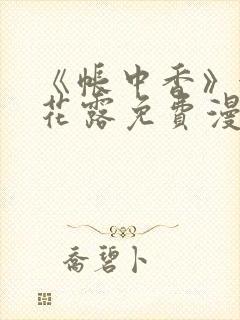 《帐中香》
花露免费漫
乔碧卜